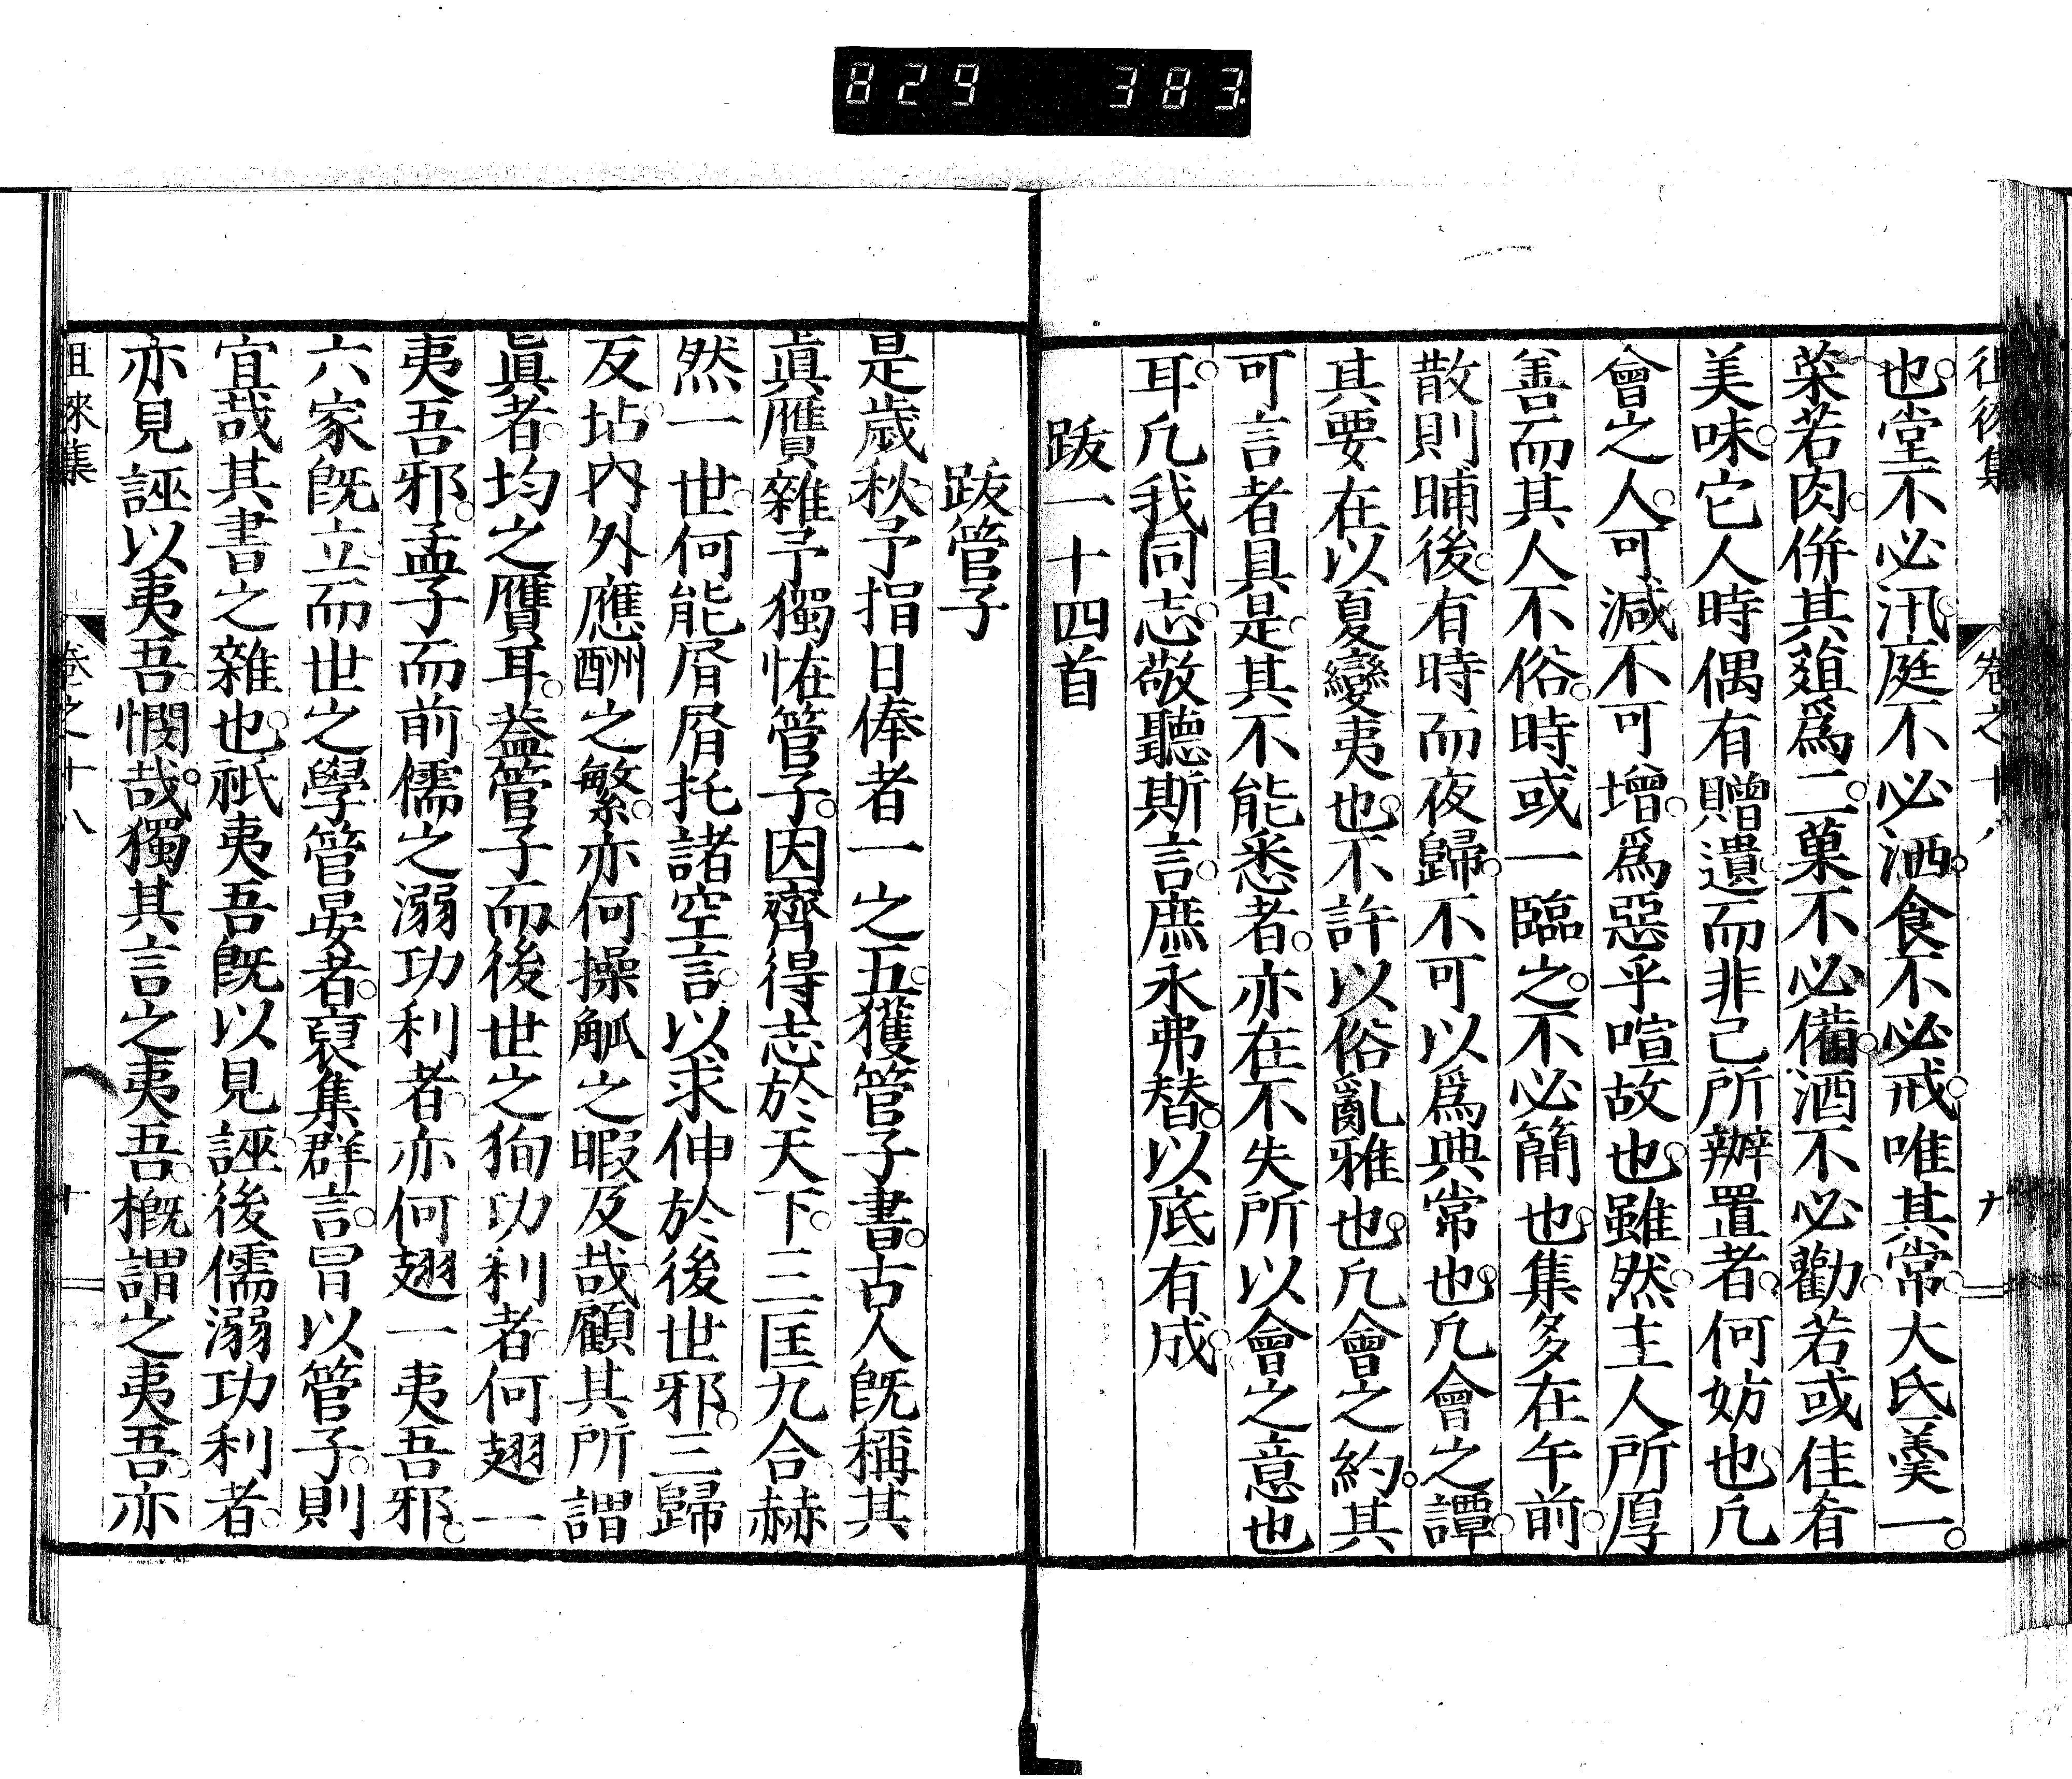 829 383
徂徠集 卷之十八 九
也。堂不必汛。庭不必洒。食不必戒。唯其常。大氐羹一。
菜若肉。併其葅爲二。菓不必備。酒不必勸。若或佳肴
美味。它人時偶有贈遺。而非己所辦置者。何妨也。凡
會之人。可減。不可增。爲惡乎喧故也。雖然。主人所厚
善。而其人不俗。時或一臨之。不必簡也。集多在午前。
散則晡後。有時而夜歸。不可以爲典常也。凡會之譚。
其要在以夏變夷也。不許以俗亂雅也。凡會之約。其
可言者具是。其不能悉者。亦在不失所以會之意也
耳。凡我同志。敬聽斯言。庶永弗替。以底有成。
跋一十四首
跋管子
是歲秋。予指日俸者一之五。獲管子書。古人既稱其
眞贋雜。予獨恠管子。因齊得志於天下。三匡九合。赫
然一世。何能屑屑托諸空言。以求伸於後世邪。三歸
反坫。內外應酬之繁。亦何操觚之暇及哉。顧其所謂
眞者。均之贋耳。葢管子而後世之狥功利者。何翅一
夷吾邪。孟子而前儒之溺功利者。亦何翅一夷吾邪。
六家旣立。而世之學管晏者。裒集群言。冒以管子。則
宜哉其書之雜也。祇夷吾旣以見誣。後儒溺功利者。
亦見誣以夷吾。憫哉。獨其言之夷吾。槪謂之夷吾。亦
徂徠集 卷之十八 十